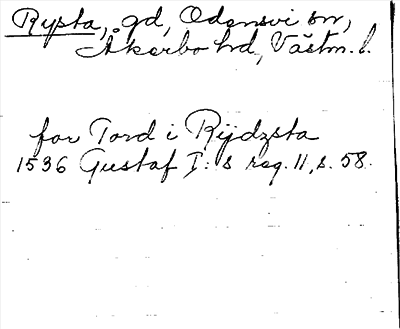 Rysta, gd, Odensvi sn,
Åkerbo hd, Västm. l.
for Tord i Rijdzsta
1536 Gustaf I:s reg. 11, s. 58.